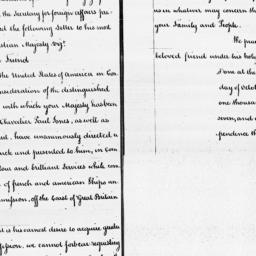 the Secretary for foreign affairs
d the following letter to his most
stian Majesty viz.
Friend
the United States of America in Con
nsideration of the distinguished
with which your Majesty has been
Chevalier Paul Jones, as well as
ed, have unanimously directed a
uck and presented to him, in
lour and brilliant Services while com
of french and american Ships
mission, off the Coast of Great Britain
t is his earnest desire to acquire
fession, we cannot forbear requesting
us in whatever may concern the
your Family and People.
We pray
beloved friend under his holy
Done at the
day of
one thousand
seven, and
pendence th